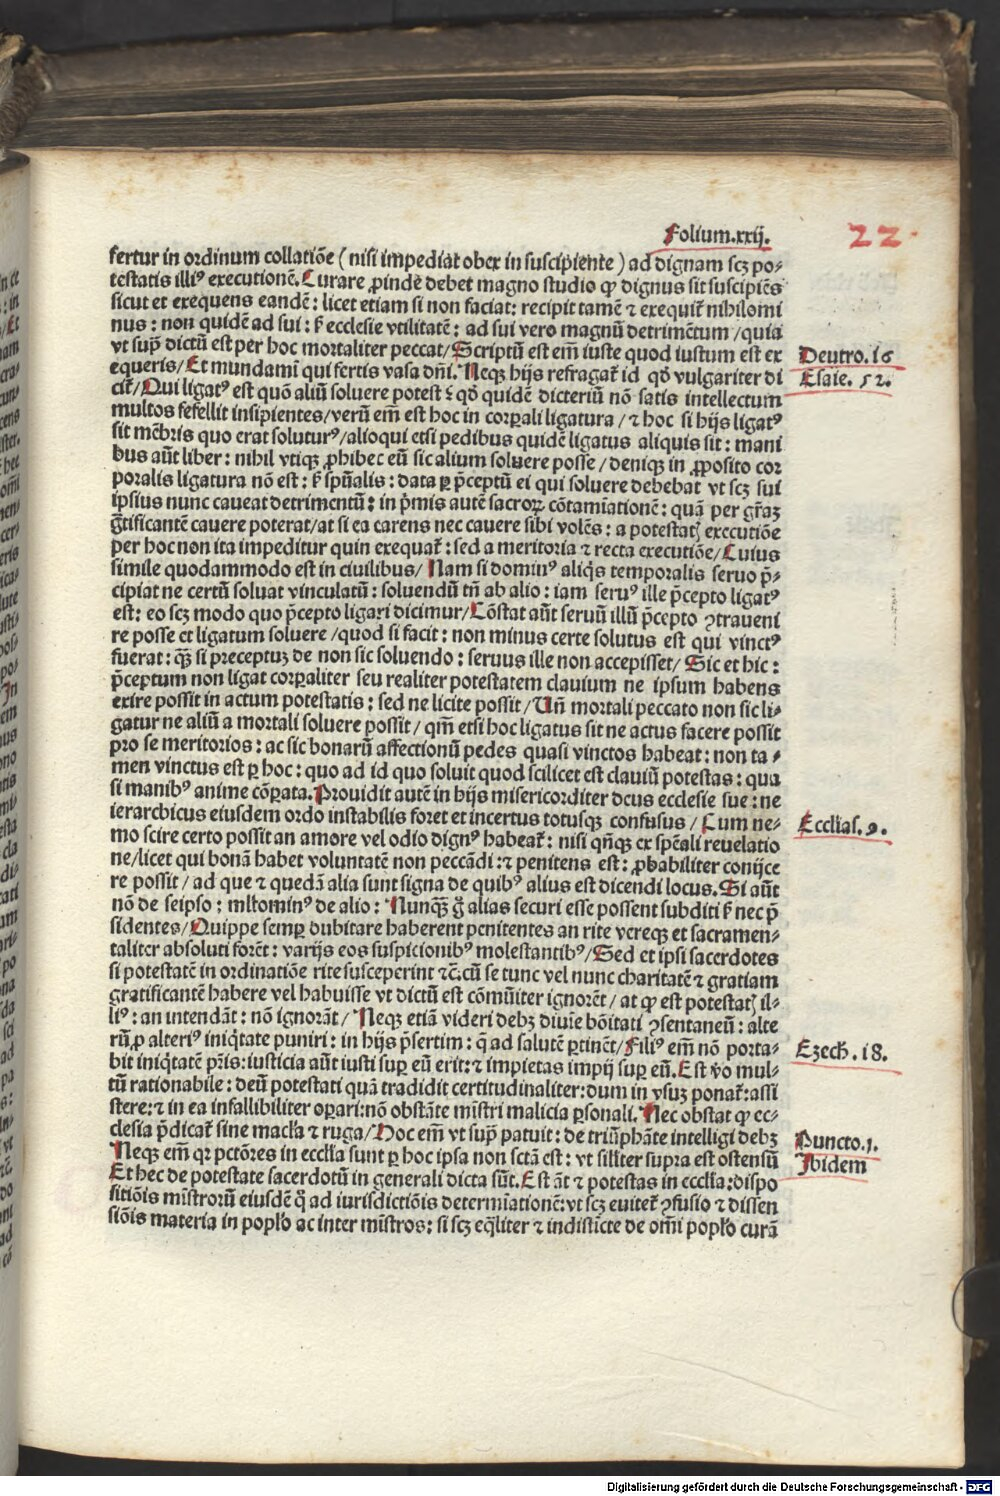 Folium.xxij.
22.
fertur in ordinum collatiōe (nisi impediat obex in suscipiente) ad dignam scꝫ po⸗
testatis illiꝰ executionē. Curare ꝓindē debet magno studio ꝙ dignus sit suscipiēs
sicut et exequens eandē: licet etiam si non faciat: recipit tamē ⁊ exequit̄ nihilomi
nus: non quidē ad sui: s̄ ecclesie vtilitatē: ad sui vero magnū detrimētum/quia
vt sup̄ dictū est per hoc mortaliter peccat/Scriptū est em̄ iuste quod iustum est ex
equeris/Et mundamī qui fertis vasa dn̄i. Neqꝫ hijs refragat̄ id qd̄ vulgariter di
cit̄/Qui ligatꝰ est quō aliū soluere potest: qd̄ quidē dicteriū nō satis intellectum
multos fefellit insipientes/verū em̄ est hoc in corꝑali ligatura/⁊ hoc si hijs ligatꝰ
sit mēbris quo erat soluturꝰ/alioqui etsi pedibus quidē ligatus aliquis sit: mani
bus aūt liber: nihil vtiqꝫ ꝓhibec eū sic alium soluere posse/deniqꝫ in ꝓposito cor
poralis ligatura nō est: s̄ spūalis: data ꝑ p̄ceptū ei qui soluere debebat vt scꝫ sui
ipsius nunc caueat detrimentū: in p̄mis autē sacroꝝ cōtamīationē: quā per gr̄aꝫ
ḡtificantē cauere poterat/at si ea carens nec cauere sibi volēs: a potestatꝭ executiōe
per hoc non ita impeditur quin exequat̄: sed a meritoria ⁊ recta executiōe/Cuius
simile quodammodo est in ciuilibus/ Nam si dominꝰ aliq̄s temporalis seruo p̄⸗
cipiat ne certū soluat vinculatū: soluendū tn̄ ab alio: iam seruꝰ ille p̄cepto ligatꝰ
est: eo scꝫ modo quo p̄cepto ligari dicimur/Cōstat aūt seruū illū p̄cepto ꝯtraueni
re posse et ligatum soluere/quod si facit: non minus certe solutus est qui vinctꝰ
fuerat: qꝫ̄ si preceptuꝫ de non sic soluendo: seruus ille non accepisset/ Sic et hic:
p̄ceptum non ligat corꝑaliter seu realiter potestatem clauium ne ipsum habens
exire possit in actum potestatis: sed ne licite possit/Vn̄ mortali peccato non sic li⸗
gatur ne aliū a mortali soluere possit/qm̄ etsi hoc ligatus sit ne actus facere possit
pro se meritorios: ac sic bonarū affectionū pedes quasi vinctos habeat: non ta⸗
men vinctus est ꝑ hoc: quo ad id quo soluit quod scilicet est clauiū potestas: qua
si manibꝰ anime cōꝑata. Prouidit autē in hijs misericorditer deus ecclesie sue: ne
ierarchicus eiusdem ordo instabilis foret et incertus totusqꝫ confusus/ Cum ne⸗
mo scire certo possit an amore vel odio dignꝰ habeat̄: nisi qn̄qꝫ ex sp̄eāli reuelatio
ne/licet qui bonā habet voluntatē non peccādi: ⁊ penitens est: ꝓbabiliter conijce
re possit/ad que ⁊ quedā alia sunt signa de quibꝰ alius est dicendi locus. Si aūt
nō de seipso: ml̄tominꝰ de alio: Nunqꝫ̄ g̊ alias securi esse possent subditi s̄ nec p̄
sidentes/Quippe semꝑ dubitare haberent penitentes an rite vereqꝫ et sacramen⸗
taliter absoluti forēt: varijs eos suspicionibꝰ molestantibꝰ/Sed et ipsi sacerdotes
si potestatē in ordinatiōe rite susceperint ⁊c̄. cū se tunc vel nunc charitatē ⁊ gratiam
gratificantē habere vel habuisse vt dictū est cōmūiter ignorēt/at ꝙ est potestatꝭ il⸗
liꝰ: an intendāt: nō ignorāt/ Neqꝫ etiā videri debꝫ diuīe bōitati ꝯsentaneū: alte
rū ꝓ alteriꝰ iniq̄tate puniri: in hijs p̄sertim: q̄ ad salutē ꝑtinēt/Filiꝰ em̄ nō porta⸗
bit iniq̄tatē pr̄is: iusticia aūt iusti suꝑ eū erit: ⁊ impietas impij suꝑ eū. Est v̊o mul⸗
tū rationabile: deū potestati quā tradidit certitudinaliter: dum in vsuꝫ ponat̄: assi
stere: ⁊ in ea infallibiliter oꝑari: nō obstāte mīstri malicia ꝑsonali. Nec obstat ꝙ ec⸗
clesia p̄dicat̄ sine macl̄a ⁊ ruga/Hoc em̄ vt sup̄ patuit: de triūphāte intelligi debꝫ
Neqꝫ em̄ qꝛ pctōres in eccl̄ia sunt ꝑ hoc ipsa non sctā est: vt sil̄iter supra est ostensū
Et hec de potestate sacerdotū in generali dicta sūt. Est āt ⁊ potestas in eccl̄ia: dispo
sitiōis mīstrorū eiusdē q̊ ad iurisdictiōis determīationē: vt scꝫ euitet̄ ꝯfusio ⁊ dissen
siōis materia in popl̄o ac inter mīstros: si scꝫ eq̄liter ⁊ indistīcte de om̄i popl̄o curā
Deutro. 16
Esaie. 52.
Eccl̄ias. 9.
Ezech. 18.
Puncto. 1.
Ibidem
Digitalisierung gefördert durch die Deutsche Forschungsgemeinschaft - DFG